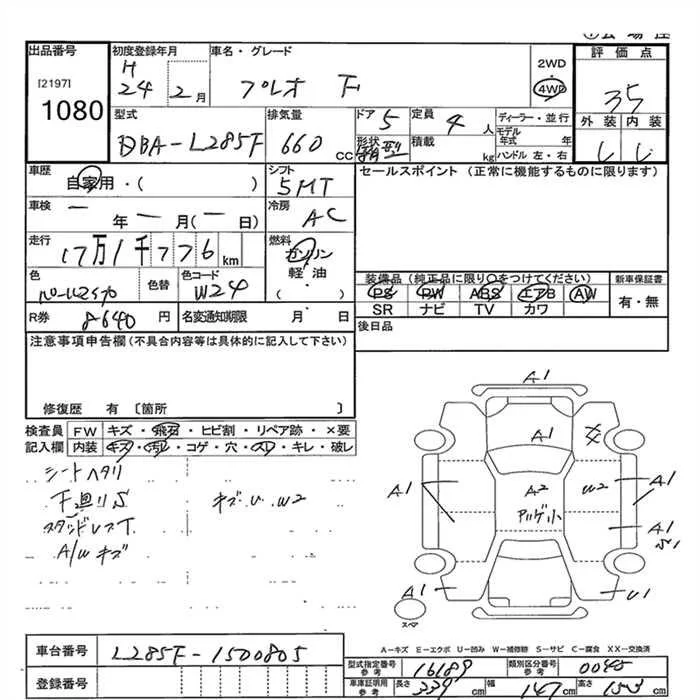 出品番号 初度登録年月 車名・グレード 評価点
[2197] H 24 2月 プレオ F 2WD・4WD 35
1080
型式 排気量 ドア 定員 ディーラー・並行 外装 内装
DBA-L285F 660CC 5 4人 モデル年式 年
形状 積載 kg ハンドル 左・右
車歴 シフト セールスポイント (正常に機能するものに限ります)
自家用・( ) 5MT
車検 冷房
一年一月(一日) AC
走行 燃料
17万1千776km ガソリン
軽油
( )
色 色替 色コード
W24
装備品(純正品に限り○をつけてください) 新車保証書
PS PW ABS エアB AW 有・無
SR ナビ TV カワ
R券 8640円 名変通知期限 月 日 後日品
注意事項申告欄(不具合内容等は具体的に記入して下さい)
修復歴 有 〔箇所 〕
検査員 FW キズ・飛石・ヒビ割・リペア跡・×要
記入欄 内装 キズ・汚レ・コゲ・穴・スレ・キレ・破レ
シートヘタリ
下廻りS キズ・U・W2
A/W キズ
A1
A1
A1 A2 W2 A1
A1
A1 U1
スペア
A-キズ E-エクボ U-凹み W-補修跡 S-サビ C-腐食 XX-交換済
車台番号 L285F-1500805
型式指定番号 16189 類別区分番号 0045
登録番号 車車証明用 長さ 339cm 幅 147cm 高さ 153cm